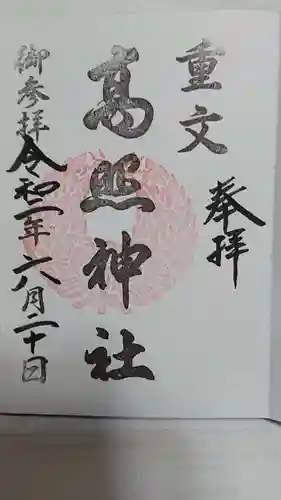 重文
奉拝
高照神社
御参拝
令和二年六月二十日